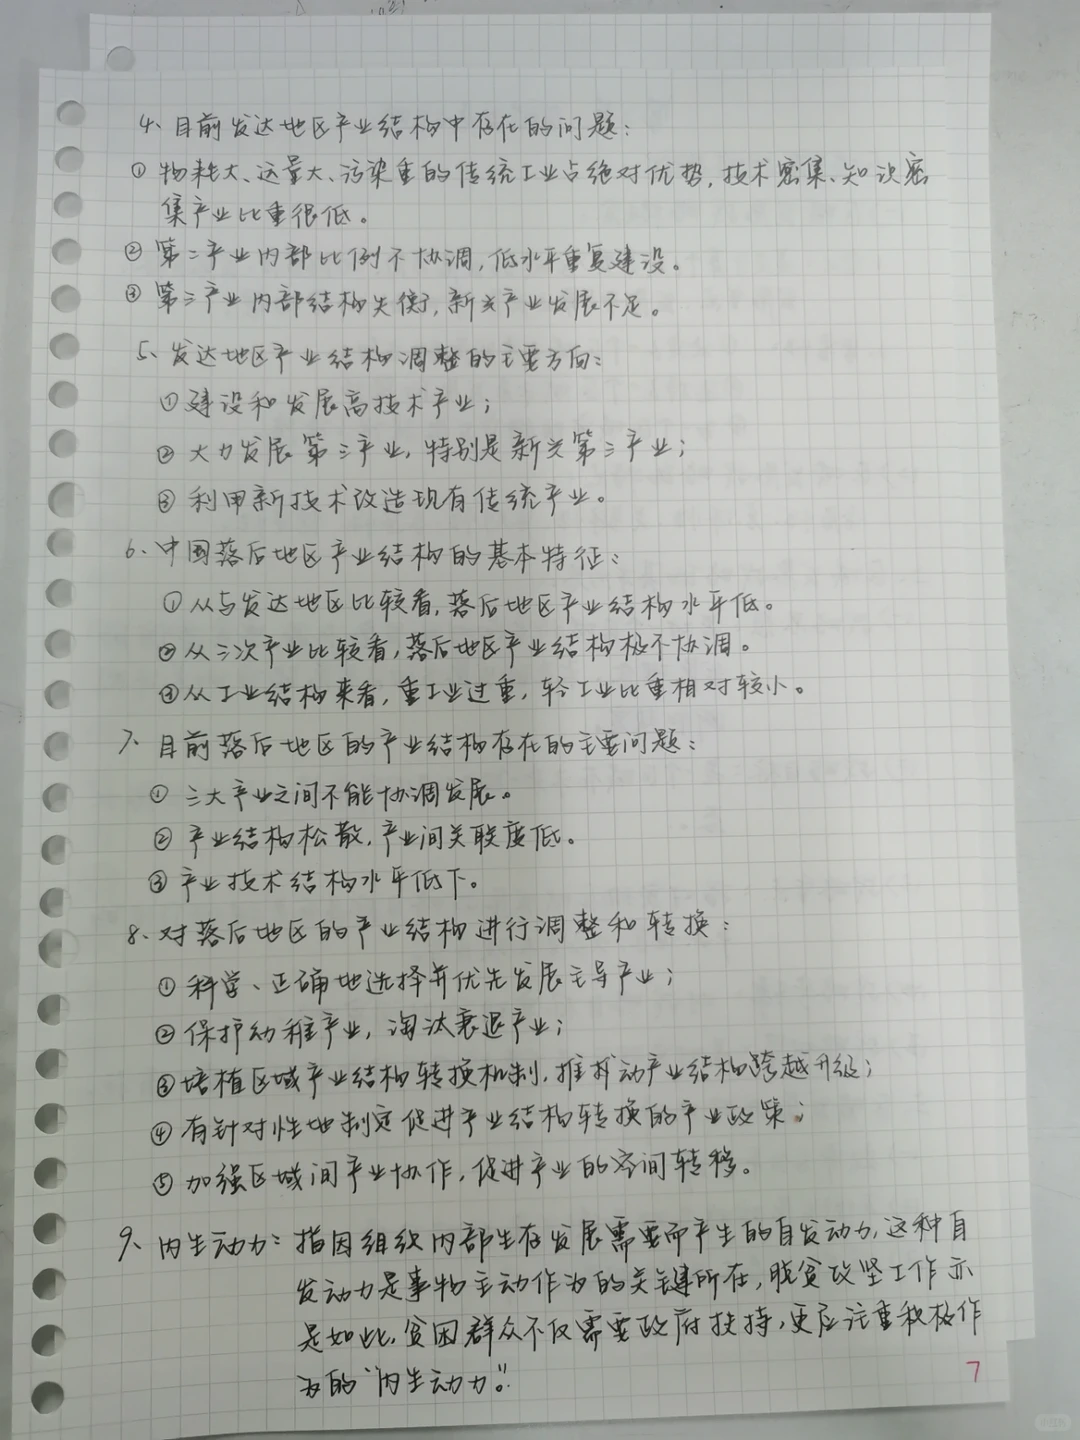 4、目前发达地区产业结构中存在的问题：
①物耗大、运量大、污染重的传统工业占绝对优势，技术密集、知识密
集产业比重很低。
②第二产业内部比例不协调，低水平重复建设。
③第三产业内部结构失衡，新兴产业发展不足。
5、发达地区产业结构调整的主要方向：
①建设和发展高技术产业；
②大力发展第三产业，特别是新兴第三产业；
③利用新技术改造现有传统产业。
6、中国落后地区产业结构的基本特征：
①从与发达地区比较看，落后地区产业结构水平低。
②从三次产业比较看，落后地区产业结构极不协调。
③从工业结构来看，重工业过重，轻工业比重相对较小。
7、目前落后地区的产业结构存在的主要问题：
①三大产业之间不能协调发展。
②产业结构松散，产业间关联度低。
③产业技术结构水平低下。
8、对落后地区的产业结构进行调整和转换：
①科学、正确地选择并优先发展主导产业；
②保护幼稚产业，淘汰衰退产业；
③培植区域产业结构转换机制，推动产业结构跨越升级；
④有针对性地制定促进产业结构转换的产业政策；
⑤加强区域间产业协作，促进产业的空间转移。
9、内生动力：指因组织内部生存发展需要而产生的自发动力，这种自
发动力是事物主动作为的关键所在，脱贫攻坚工作亦
是如此，贫困群众不仅需要政府扶持，更应注重积极作
为的“内生动力”。
7